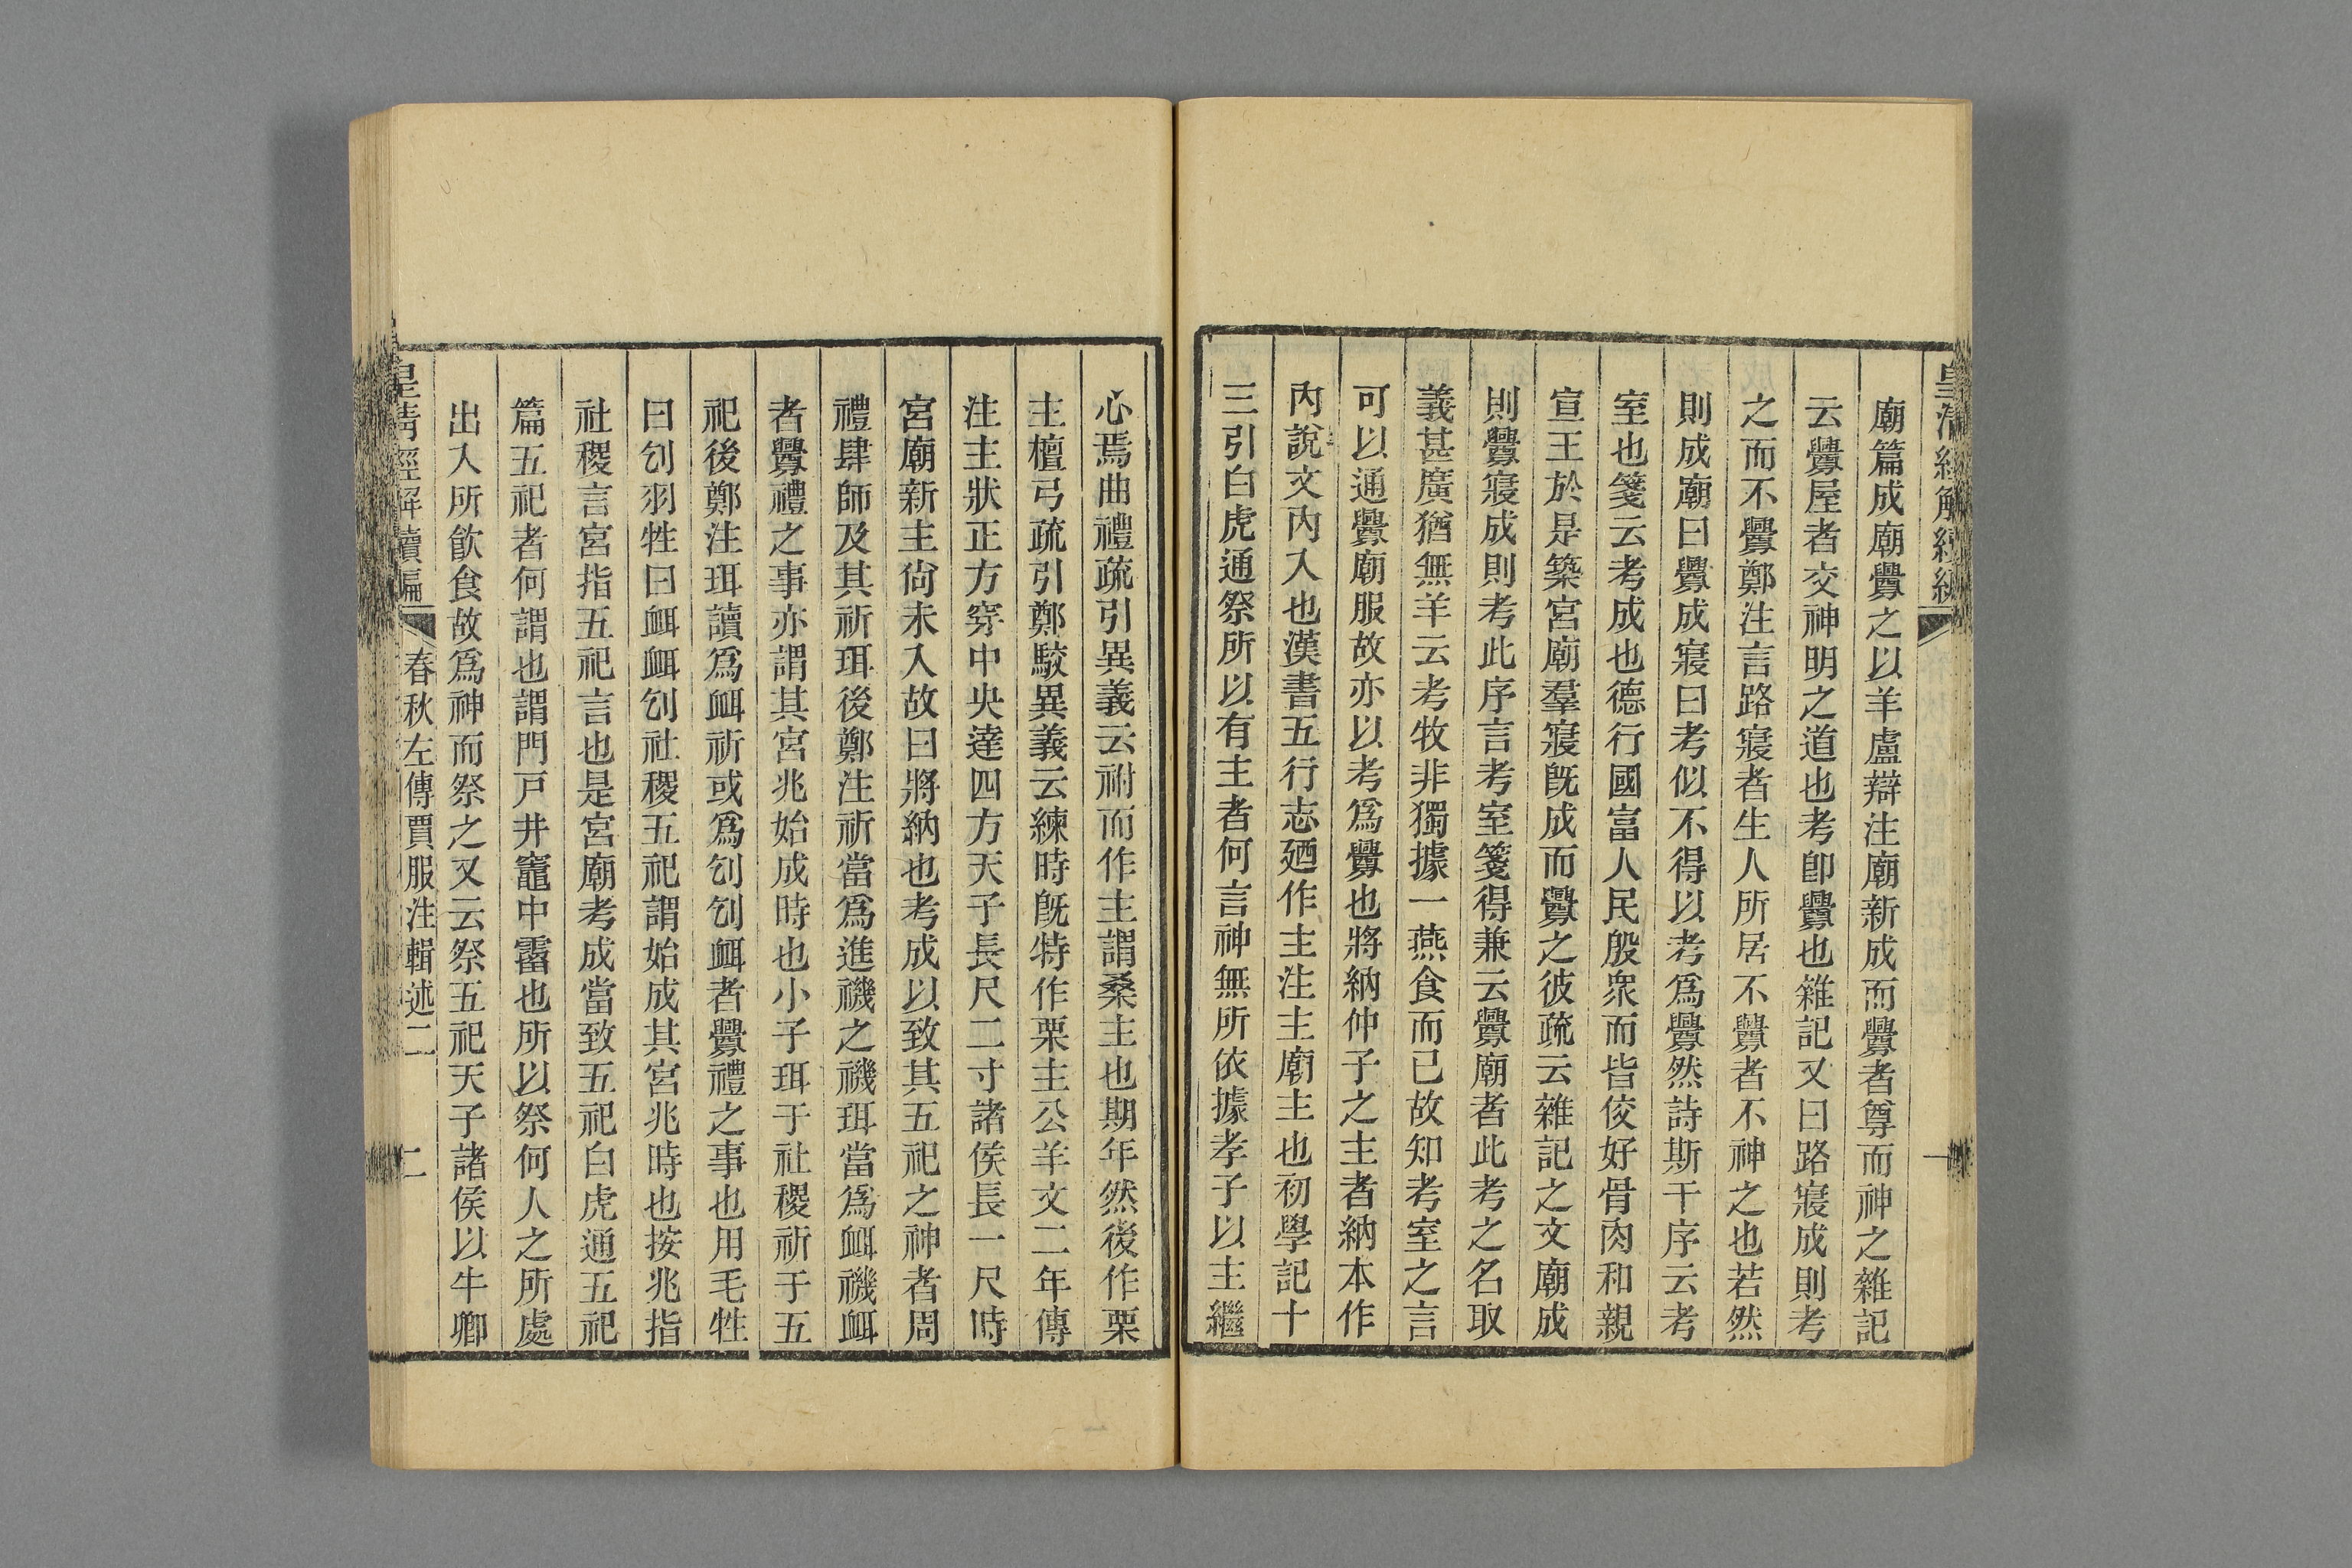 皇清經解續編
一
廟篇成廟釁之以羊盧辯注廟新成而釁者尊而神之雜記
云釁屋者交神明之道也考卽釁也雜記又曰路寢成則考
之而不釁鄭注言路寢者生人所居不釁者不神之也若然
則成廟曰釁成寢曰考似不得以考爲釁然詩斯干序云考
室也箋云考成也德行國富人民殷衆而皆佼好骨肉和親
宣王於是築宮廟羣寢旣成而釁之彼疏云雜記之文廟成
則釁寢成則考此序言考室箋得兼云釁廟者此考之名取
義甚廣猶無羊云考牧非獨據一燕食而已故知考室之言
可以通釁廟服故亦以考爲釁也將納仲子之主者納本作
內說文內入也漢書五行志廼作主注主廟主也初學記十
三引白虎通祭所以有主者何言神無所依據孝子以主繼
心焉曲禮疏引異義云祔而作主謂桑主也期年然後作栗
主檀弓疏引鄭駮異義云練時旣特作栗主公羊文二年傳
注主狀正方穿中央達四方天子長尺二寸諸侯長一尺時
宮廟新主尙未入故曰將納也考成以致其五祀之神者周
禮肆師及其祈珥後鄭注祈當爲進禨之禨珥當爲衈禨衈
者釁禮之事亦謂其宮兆始成時也小子珥于社稷祈于五
祀後鄭注珥讀爲衈祈或爲刉刉衈者釁禮之事也用毛牲
曰刉羽牲曰衈衈刉社稷五祀謂始成其宮兆時也按兆指
社稷言宮指五祀言也是宮廟考成當致五祀白虎通五祀
篇五祀者何謂也謂門戸井竈中霤也所以祭何人之所處
出入所飮食故爲神而祭之又云祭五祀天子諸侯以牛卿
皇清經解續編
春秋左傳賈服注輯述二
二